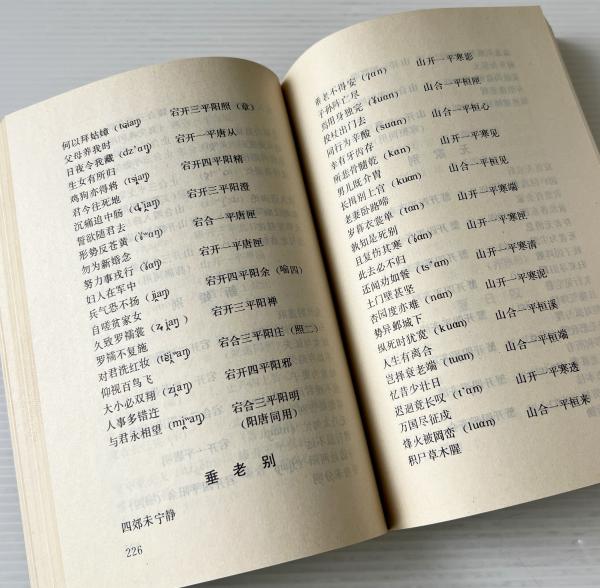 何以拜姑嫜（tɕi̯aŋ） 宕开三平阳照（章）
父母养我时
日夜令我藏（dz'ɑŋ） 宕开一平唐从
生女有所归
鸡狗亦得将（tsi̯aŋ） 宕开四平阳精
君今往死地
沉痛迫中肠（ȡi̯aŋ） 宕开三平阳澄
誓欲随君去
形势反苍黄（ɣʷɑŋ） 宕合一平唐匣
勿为新婚念
努力事戎行（ɣɑŋ） 宕开一平唐匣
妇人在军中
兵气恐不扬（ji̯aŋ） 宕开四平阳余（喻四）
自嗟贫家女
久致罗襦裳（ʑi̯aŋ） 宕开三平阳禅
罗襦不复施
对君洗红妆 宕合三平阳庄（照二）
仰视百鸟飞
大小必双翔（zi̯aŋ） 宕开四平阳邪
人事多错迕
与君永相望（mi̯ʷaŋ） 宕合三平阳明
（阳唐同用）
垂老别
四郊未宁静
226
垂老不得安 山开一平寒影
子孙阵亡尽
焉用身独完（ɣuɑn） 山合一平桓匣
投杖出门去
同行为辛酸（suɑn） 山合一平桓心
幸有牙齿存
所悲骨髓乾（kɑn） 山开一平寒见
男儿既介胄
长揖别上官（kuɑn） 山合一平桓见
老妻卧路啼
岁暮衣裳单（tɑn） 山开一平寒端
孰知是死别
且复伤其寒（ɣɑn） 山开一平寒匣
此去必不归
还闻劝加餐（ts'ɑn） 山开一平寒清
土门壁甚坚
杏园度亦难（nɑn） 山开一平寒泥
势异邺城下
纵死时犹宽（k'uɑn） 山合一平桓溪
人生有离合
岂择衰老端（tuɑn） 山合一平桓端
忆昔少壮日
迟迴竟长叹（t'ɑn） 山开一平寒透
万国尽征戍
烽火被冈峦（luɑn） 山合一平桓来
积尸草木腥